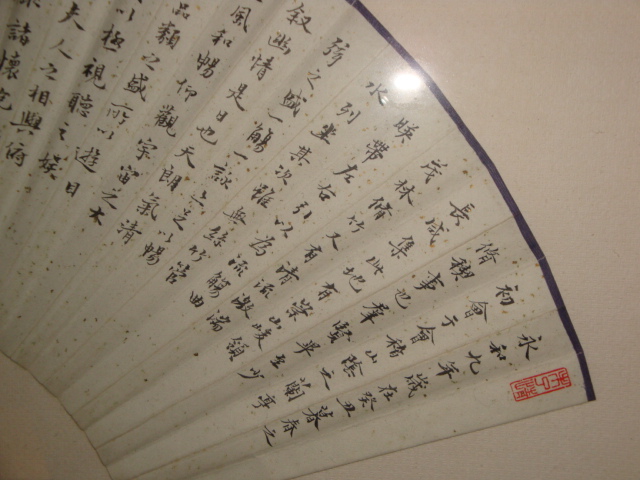 永和九年歲在癸丑暮春之
初會于會稽山陰之蘭亭
脩禊事也羣賢畢至少
長咸集此地有崇山峻領
茂林脩竹又有清流激湍
暎帶左右引以為流觴曲
水列坐其次雖無絲竹管
弦之盛一觴一詠亦足以暢
叙幽情是日也天朗氣清
風和暢仰觀宇宙之大
品類之盛所以遊目
以極視聽之娛
夫人之相與俯
諸懷抱